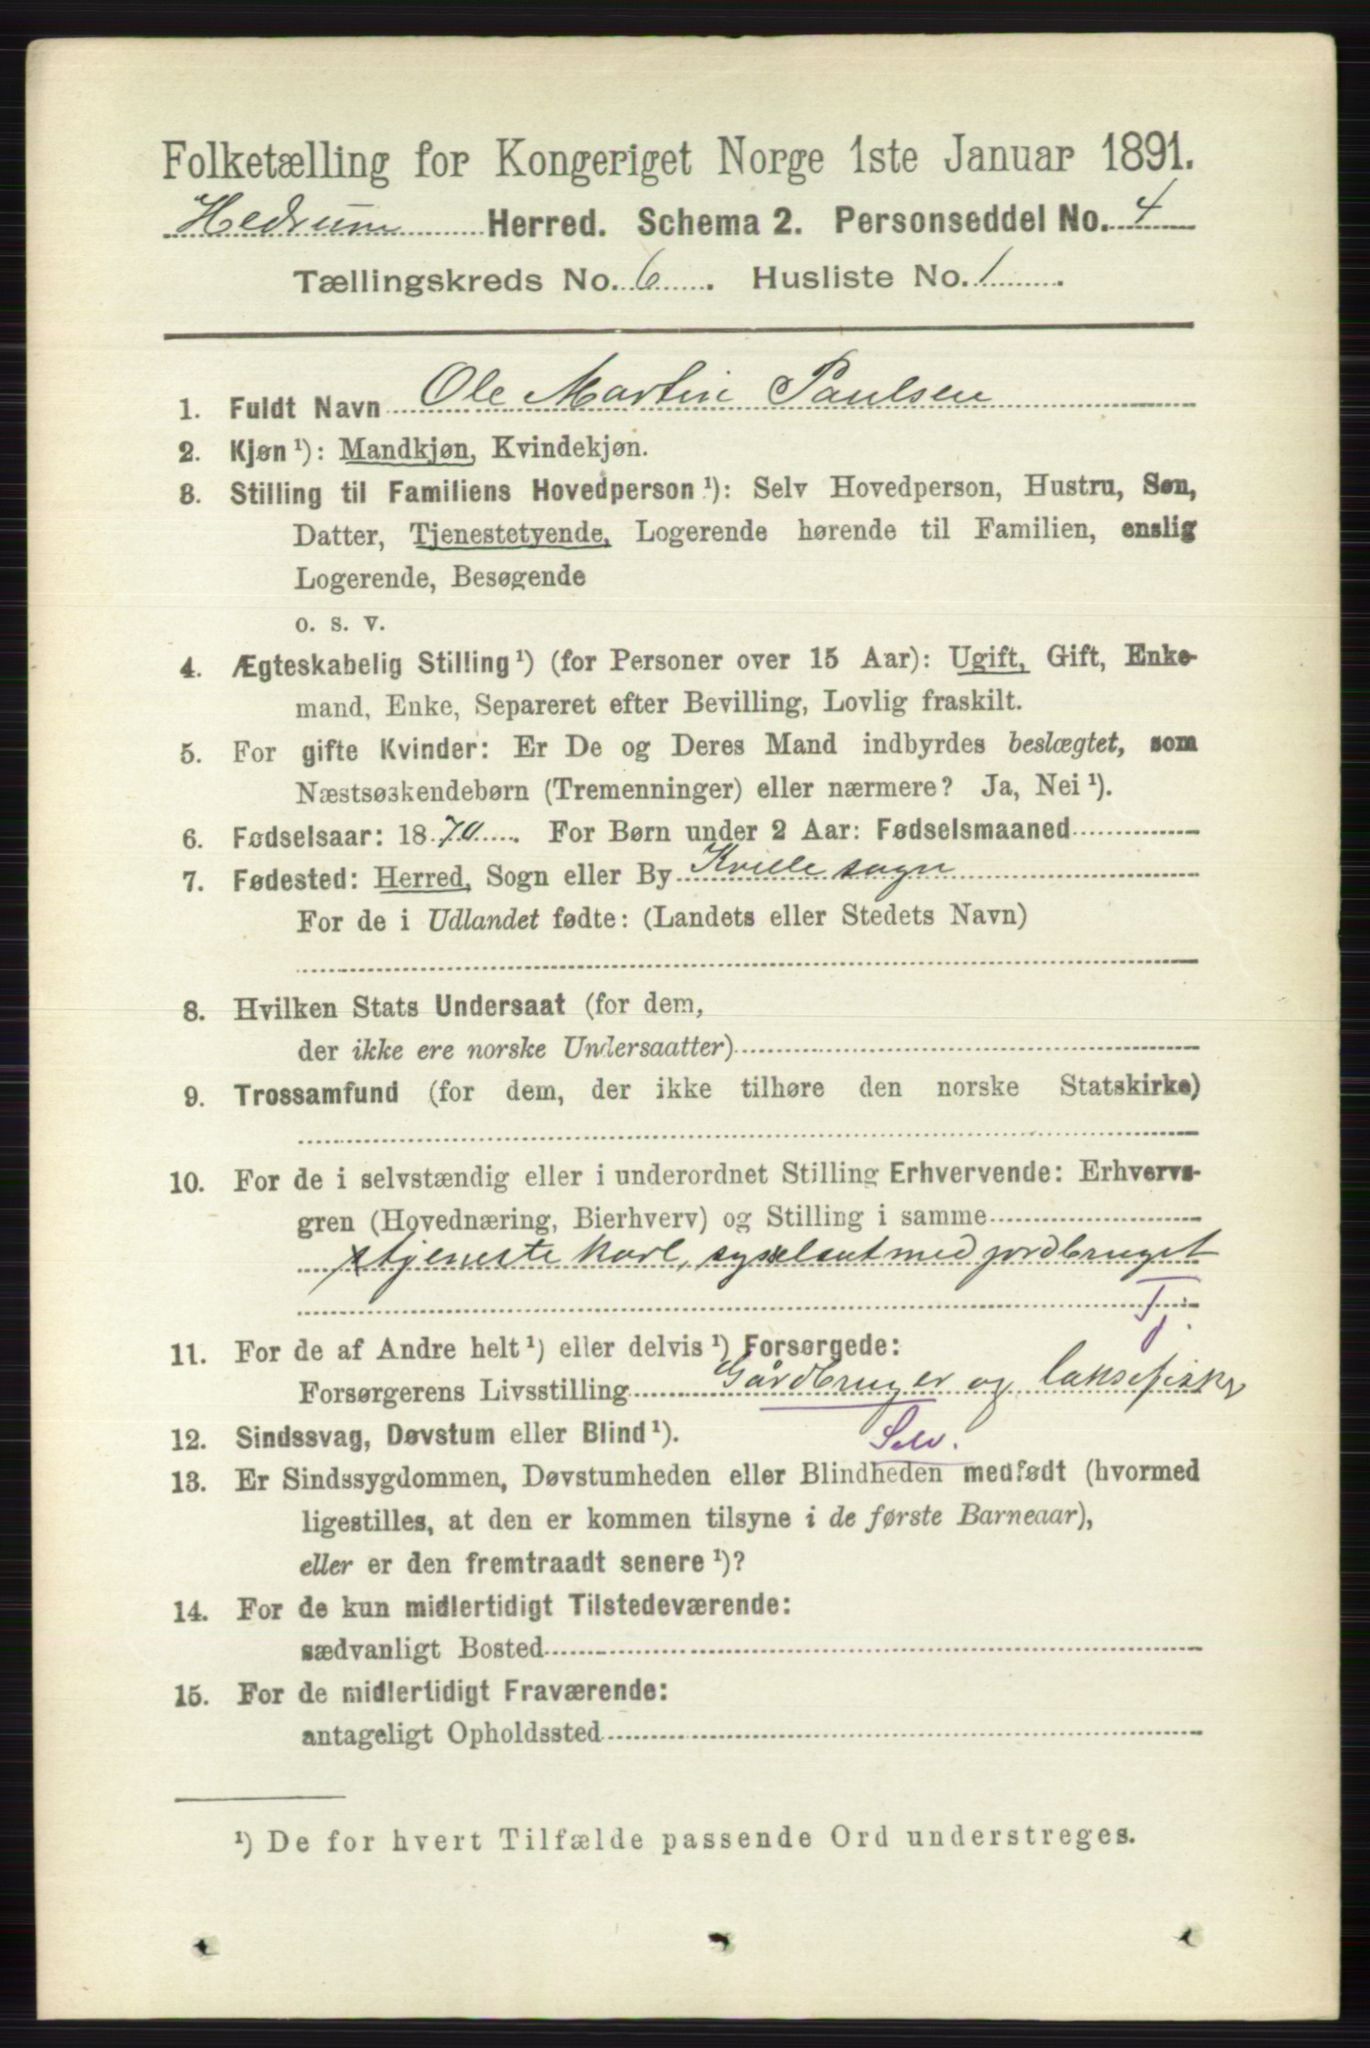 Folketælling for Kongeriget Norge 1ste Januar 1891.
Hedrum Herred. Schema 2. Personseddel No. 4
Tællingskreds No. 6. Husliste No. 1.
1. Fuldt Navn Ole Martin Paulsen
2. Kjøn ¹): Mandkjøn, Kvindekjøn.
3. Stilling til Familiens Hovedperson ¹): Selv Hovedperson, Hustru, Søn,
Datter, Tjenestetyende, Logerende hørende til Familien, enslig
Logerende, Besøgende
o. s. v.
4. Ægteskabelig Stilling ¹) (for Personer over 15 Aar): Ugift, Gift, Enke-
mand, Enke, Separeret efter Bevilling, Lovlig fraskilt.
5. For gifte Kvinder: Er De og Deres Mand indbyrdes beslægtet, som
Næstsøskendebørn (Tremenninger) eller nærmere? Ja, Nei ¹).
6. Fødselsaar: 1870. For Børn under 2 Aar: Fødselsmaaned
7. Fødested: Herred, Sogn eller By Kville sogn
For de i Udlandet fødte: (Landets eller Stedets Navn)
8. Hvilken Stats Undersaat (for dem,
der ikke ere norske Undersaatter)
9. Trossamfund (for dem, der ikke tilhøre den norske Statskirke)
10. For de i selvstændig eller i underordnet Stilling Erhvervende: Erhvervs-
gren (Hovednæring, Bierhverv) og Stilling i samme
tjeneste karl, sysselsat med jordbruget
Tj.
11. For de af Andre helt ¹) eller delvis ¹) Forsørgede:
Forsørgerens Livsstilling Gårdbruger og laksefisker
12. Sindssvag, Døvstum eller Blind ¹). Selv.
13. Er Sindssygdommen, Døvstumheden eller Blindheden medfødt (hvormed
ligestilles, at den er kommen tilsyne i de første Barneaar),
eller er den fremtraadt senere ¹)?
14. For de kun midlertidigt Tilstedeværende:
sædvanligt Bosted
15. For de midlertidigt Fraværende:
antageligt Opholdssted
¹) De for hvert Tilfælde passende Ord understreges.